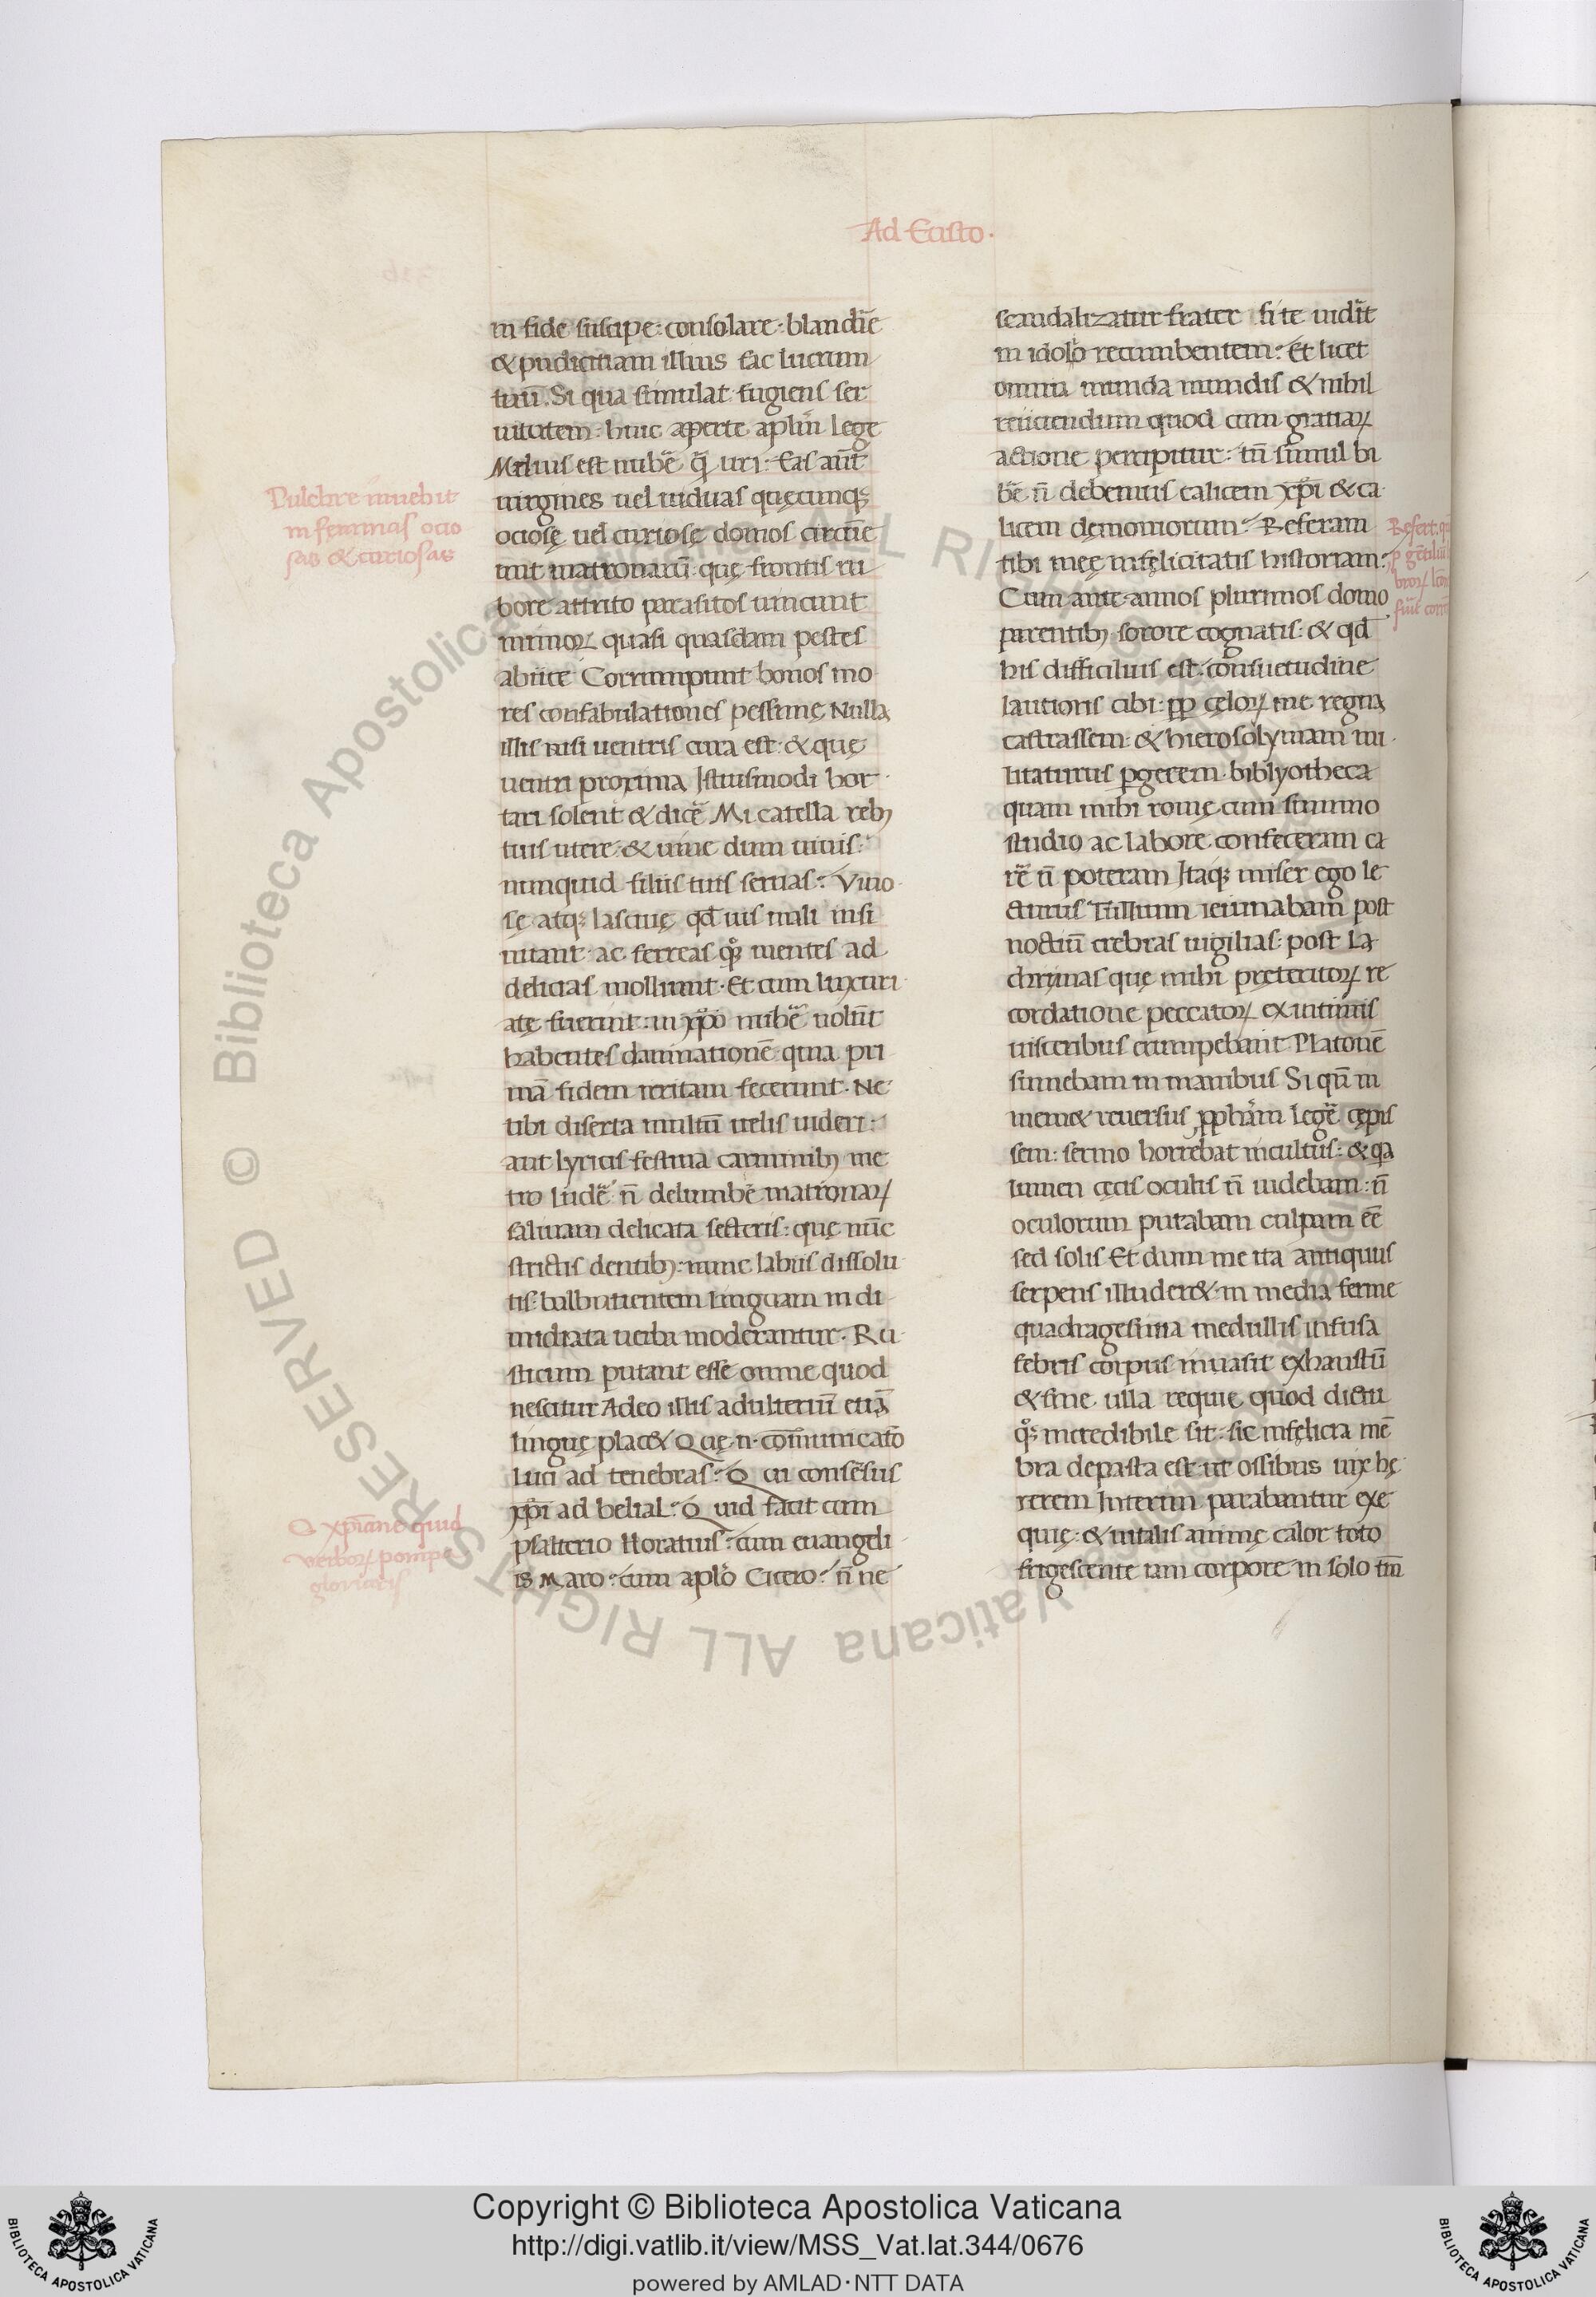 Ad Eusto.
in fide suscipe: consolare: blandire
& pudicitiam illius fac lucrum
tuū. Si qua simulat fugiens ser
uitutem. huic aperte aplm̄ lege
Melius est nubē q̄ uri: Eas aūt
uirgines uel uiduas quęcunq;
ociosę uel curiosę domos circūe
unt matronarū. quę frontis ru
bore attrito parasitos uincunt
mimoꝝ quasi quasdam pestes
abiice Corrumpunt bonos mo
res confabulationes pessimę Nulla
illis nisi uentris cura est: & quę
uentri proxima Istiusmodi hor
tari solent & dicē Mi catella rebꝫ
tuis utere. & uiue dum uiuis:
nunquid filiis tuis seruas? Vino
sę atq; lasciuę qd̄ uis mali insi
nuant: ac ferreas qͦq; mentes ad
delicias molliunt. Et cum luxuri
atę fuerint: in xp̄o nubē uolūt
habentes damnationē quia pri
mā fidem irritam fecerunt. Ne
tibi diserta multū uelis uideri:
aut lyricis festiua carminibꝫ me
tro ludē: n̄ delumbē matronaꝝ
saliuam delicata secteris: quę nūc
strictis dentibꝫ: nunc labiis dissolu
tis: balbutientem linguam in di
midiata uerba moderantur. Ru
sticum putant esse omne quod
nescitur Adeo illis adulteriū etiā
linguę plac& Quę .n. cōmunicatō
luci ad tenebras? Qui consēsus
xp̄i ad belial? Quid facit cum
psalterio Horatius? cum euangeli
is Maro? cum aplō Cicero? n̄ ne
scandalizatur frater si te uidīt
in idolō recumbentem? Et licet
omnia munda mundis & nihil
reiiciendum quod cum gratiaꝝ
actione percipitur: tn̄ simul bi
bē n̄ debemus calicem xp̄i & ca
licem dęmoniorum? Referam
tibi meę infęlicitatis historiam:
Cum ante annos plurimos domo
parentibꝫ sorore cognatis: & qd̄
his difficilius est: consuetudine
lautioris cibi: ꝓp cęloꝝ me regna
castrassem: & hierosolymam mi
litaturus ꝑgerem. biblyotheca
quam mihi romę cum summo
studio ac labore confeceram ca
rē n̄ poteram Itaq; miser ego le
cturus Tullium ieiunabam post
noctiū crebras uigilias: post la
chrymas quę mihi pręteritoꝝ re
cordatione peccatoꝝ ex intimis
uisceribus erumpebant Platonē
sumebam in manibus Si qn̄ in
mem& reuersus ꝓphām legē cępis
sem: sermo horrebat incultus: & qa
lumen cęcis oculis n̄ uidebam: n̄
oculorum putabam culpam eē
sed solis Et dum me ita antiquus
serpens illuder&. in media ferme
quadragesima medullis infusa
febris corpus inuasit exhaustū
& sine ulla requie quod dictu
qͦq; incredibile sit: sic infęlicia mē
bra depasta est: ut ossibus uix hę
rerem Interim parabantur exe
quię: & uitalis animę calor toto
frigescente iam corpore in solo tm̄
Pulchre inuehit
in feminas ocio
sas & curiosas
O xp̄iane quid
uerboꝝ pompe
gloriaris
Copyright © Biblioteca Apostolica Vaticana
http://digi.vatlib.it/view/MSS_Vat.lat.344/0676
powered by AMLAD·NTT DATA